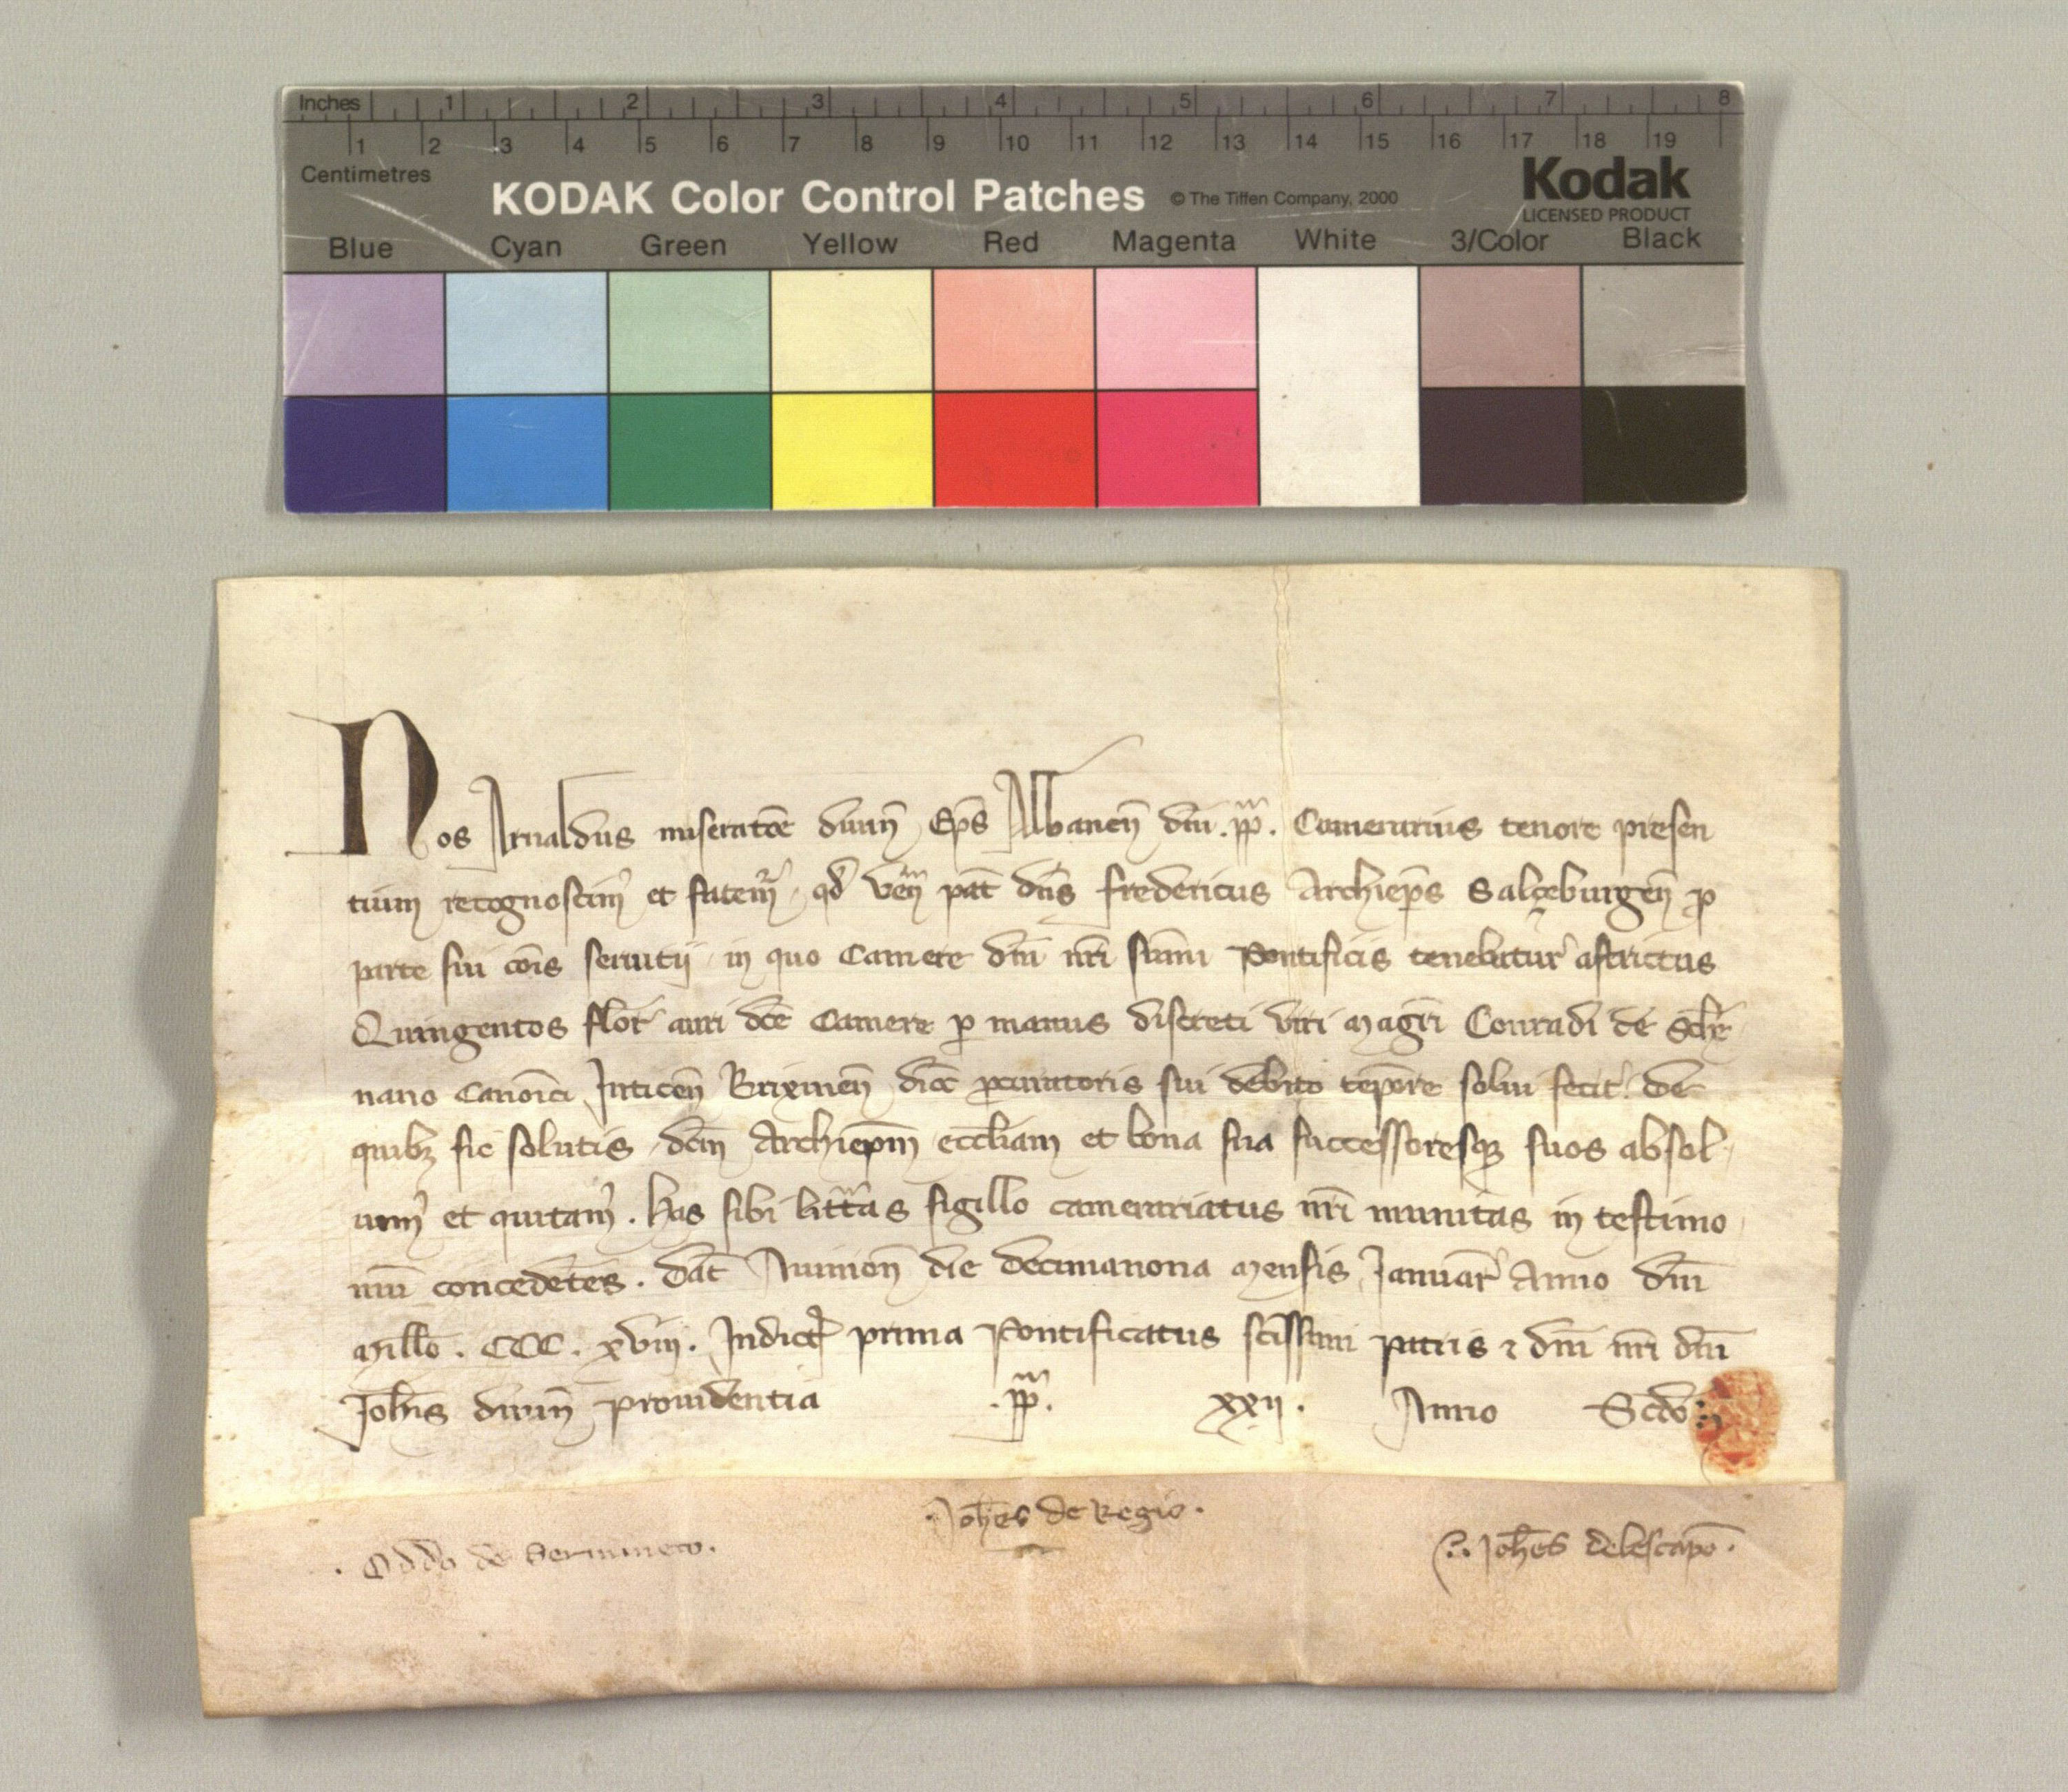 Inches 1 2 3 4 5 6 7 8
1 2 3 4 5 6 7 8 9 10 11 12 13 14 15 16 17 18 19
Centimetres
KODAK Color Control Patches © The Tiffen Company, 2000 Kodak
LICENSED PRODUCT
Blue Cyan Green Yellow Red Magenta White 3/Color Black
Nos Arnaldus miserat̄oe diuin̄ Ep̄s Albaneñ dn̄i .pp̄. Camerarius tenore presen
tium recognoscim᷒ et fatem᷒ qd̄ ven̄ pat̄ dn̄s fredericus Archiep̄s Salczeburgen̄ ꝓ
parte sui cōis seruitij in quo Camere dn̄i nr̄i sum̄i Pontificis tenebatur astrictus
Quingentos flor̄ auri dc̄e Camere ꝑ manus discreti viri magr̄i Conradi de Sch
nano Canonīci Inticen̄ Brixinen̄ dioc̄ ꝓcuratoris sui debito temp̄ore solui fecit. de
quibꝫ sic solutis dc̄m Archiep̄m eccl̄iam et bona sua successoresqꝫ suos absol
uim᷒ et quitam᷒. has sibi litt̄as sigillo camerariatus nr̄i munitas in testimo
niū concedētes. Dat̄ Auinion̄ die decimanona mensis Januar̄ Anno dn̄i
mill̄o. CCC. xviij. Indict̄ prima Pontificatus sc̄issimi patris ⁊ dn̄i nr̄i dn̄i
Joh̄is diuin̄ prouidentia .pp̄. xxij. Anno Scd̄o
. Oddo de Sermineto.
.Joh̄es de Regio.
Joh̄es delescapō.